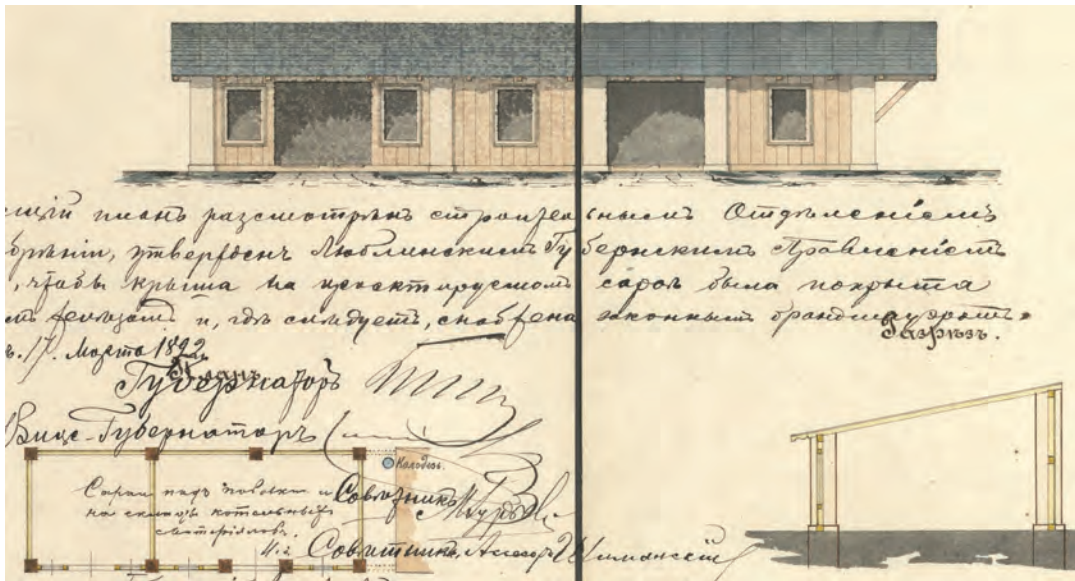 щій планъ разсмотрѣнъ строительнымъ Отдѣленіемъ
утвержденъ Люблинскимъ Губернскимъ Правленіемъ
, чтобы крыша на проектируемомъ сараѣ была покрыта
и, гдѣ слѣдуетъ, снабжена законнымъ брандмауеромъ.
Разрѣзъ.
17. Марта 1892
Планъ
Губернаторъ
Вице-Губернаторъ
Колодезь.
Сарай подъ повозки и
на складъ котельныхъ
матеріяловъ.
Совѣтникъ
И. д. Совѣтника, Ассесоръ Шиманскій